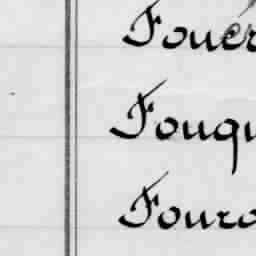 Fouer
Fouqu
Fouro